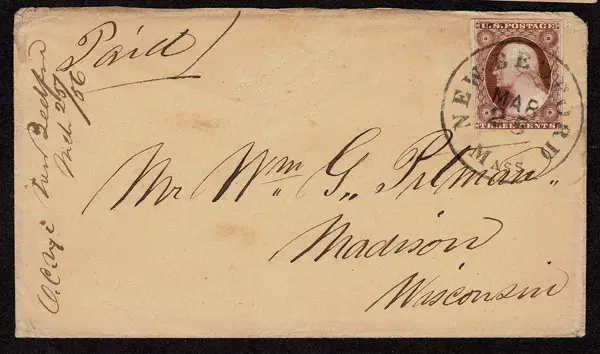 Paid
New Bedford
Mch 25/56
U.S. POSTAGE
THREE CENTS
NEW BEDFORD
MAR
25
MASS
Mr Wm G. Pitman
Madison
Wisconsin